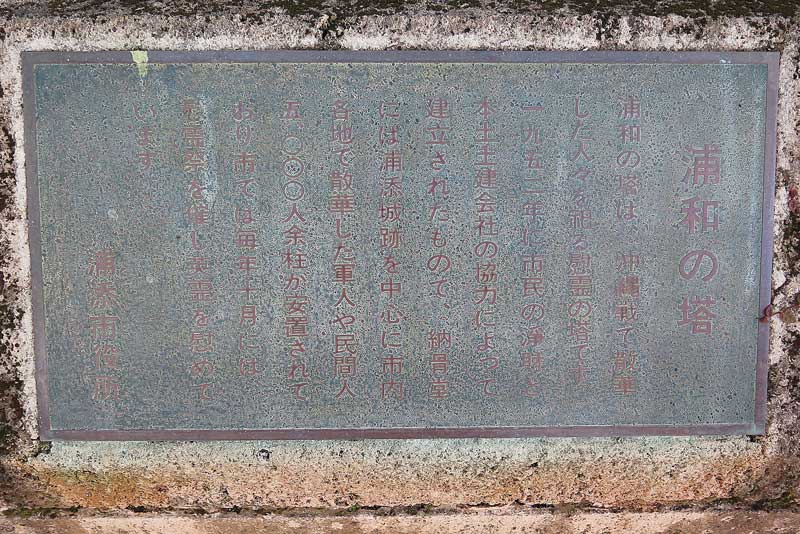 浦和の塔
浦和の塔は、沖縄戦で散華
した人々を祀る慰霊の塔です。
一九五二年に市民の浄財と
本土土建会社の協力によって
建立されたもので、納骨堂
には浦添城跡を中心に市内
各地で散華した軍人や民間人
五、〇〇〇人余柱が安置されて
おり市では毎年十月には
慰霊祭を催し英霊を慰めて
います。
浦添市役所